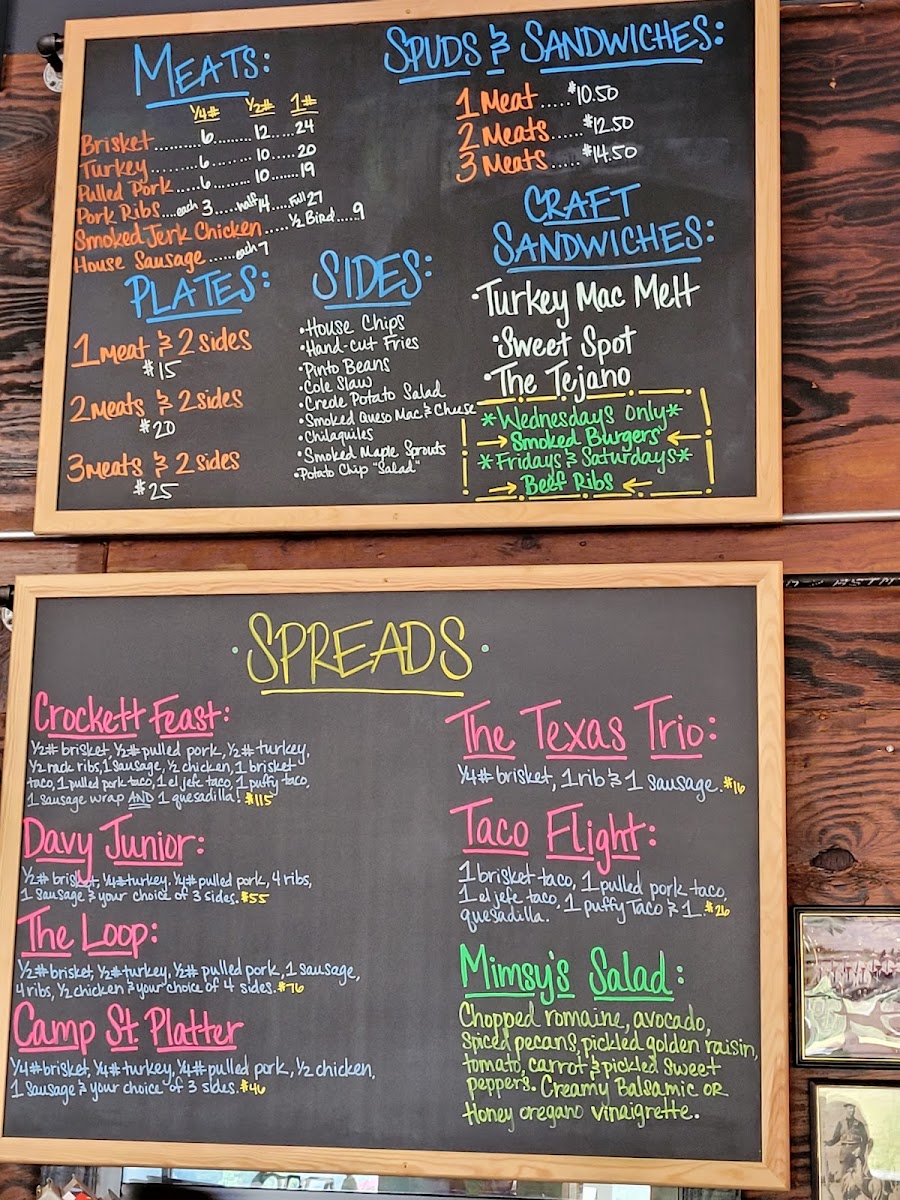 MEATS:
1/4# 1/2# 1#
Brisket.........6.........12......24
Turkey.........6.........10.....20
Pulled Pork.....6.........10.....19
Pork Ribs....each 3.....half 14....Full 27
Smoked Jerk Chicken.....1/2 Bird....9
House Sausage......each 7
PLATES:
1 Meat & 2 sides
$15
2 Meats & 2 sides
$20
3 Meats & 2 sides
$25
SIDES:
•House Chips
•Hand-cut Fries
•Pinto Beans
•Cole Slaw
•Creole Potato Salad
•Smoked Queso Mac & Cheese
•Chilaquiles
•Smoked Maple Sprouts
•Potato Chip "Salad"
SPUDS & SANDWICHES:
1 Meat.....$10.50
2 Meats......$12.50
3 Meats.....$14.50
CRAFT
SANDWICHES:
•Turkey Mac Melt
•Sweet Spot
•The Tejano
*Wednesdays Only*
→Smoked Burgers←
*Fridays & Saturdays*
→Beef Ribs←
•SPREADS•
Crockett Feast:
1/2# brisket, 1/2# pulled pork, 1/2# turkey,
1/2 rack ribs, 1 sausage, 1/2 chicken, 1 brisket
taco, 1 pulled pork taco, 1 el jefe taco, 1 puffy taco,
1 sausage wrap AND 1 quesadilla! $115
Davy Junior:
1/2# brisket, 1/4# turkey, 1/4# pulled pork, 4 ribs,
1 sausage & your choice of 3 sides. $55
The Loop:
1/2# brisket, 1/2# turkey, 1/2# pulled pork, 1 sausage,
4 ribs, 1/2 chicken & your choice of 4 sides. $76
Camp St. Platter
1/4# brisket, 1/4# turkey, 1/4# pulled pork, 1/2 chicken,
1 sausage & your choice of 3 sides. $46
The Texas Trio:
1/4# brisket, 1 rib & 1 sausage. $16
Taco Flight:
1 brisket taco, 1 pulled pork taco,
1 el jefe taco, 1 puffy Taco & 1 $26
quesadilla.
Mimsy's Salad:
Chopped romaine, avocado,
spiced pecans, pickled golden raisin,
tomato, carrot & pickled sweet
peppers. Creamy Balsamic OR
Honey oregano vinaigrette.